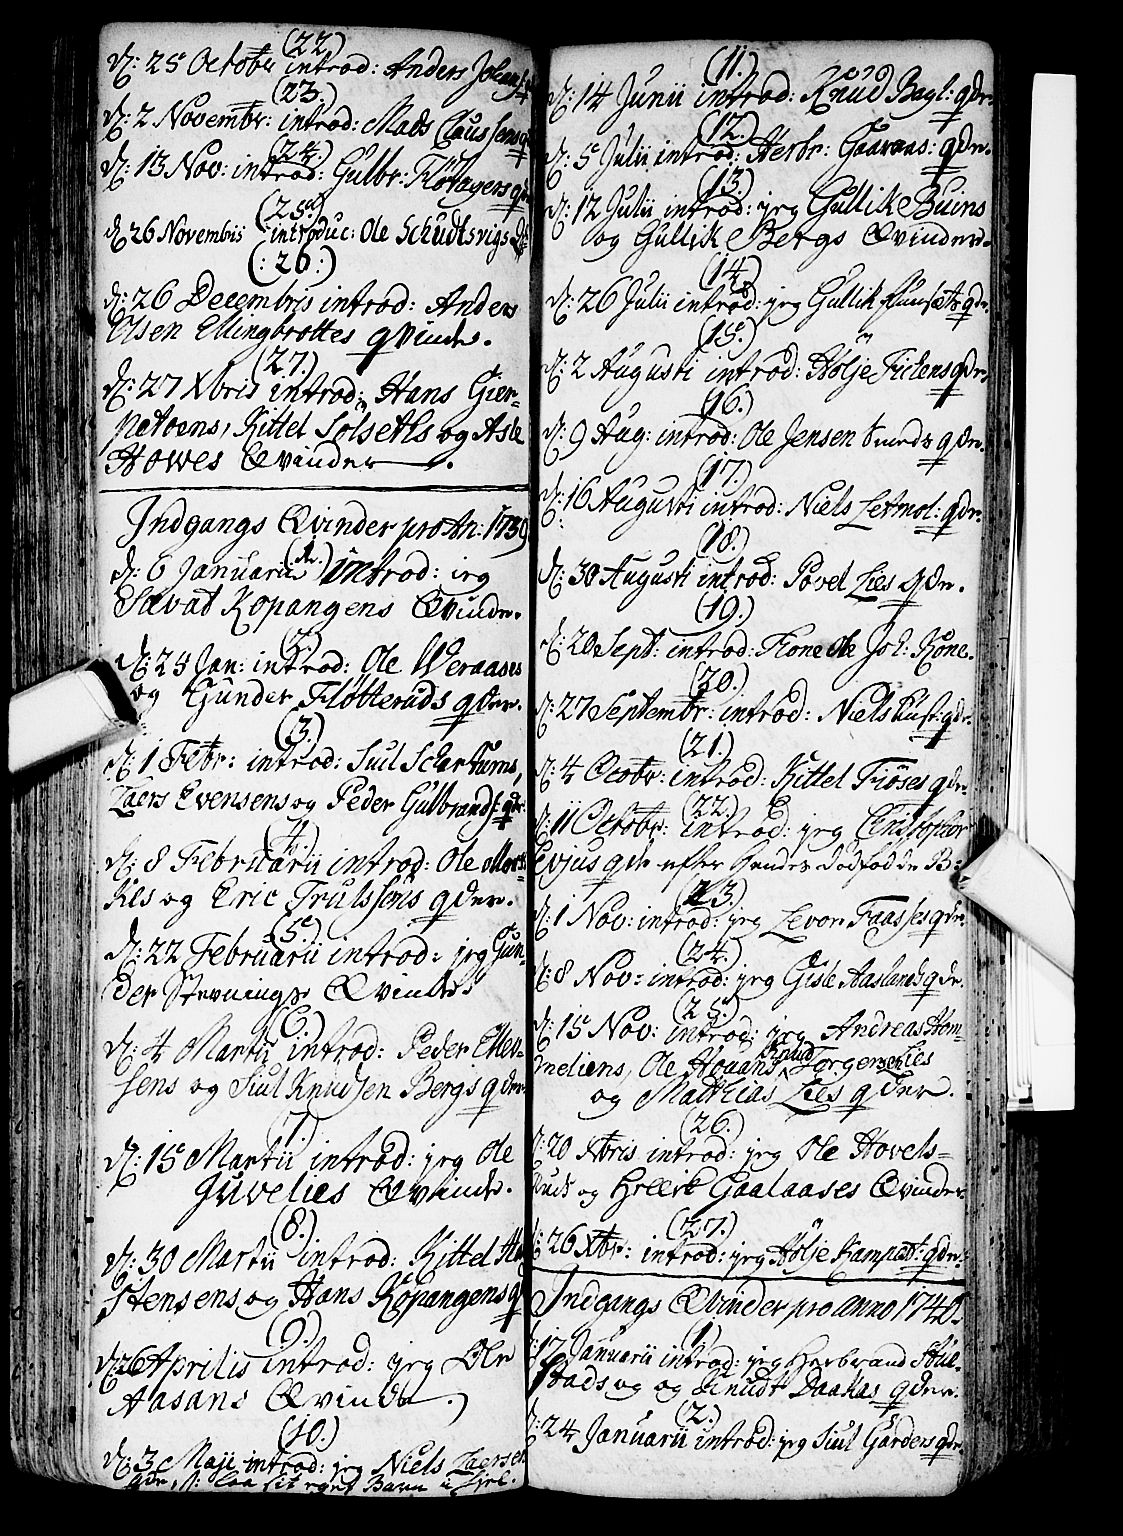 (22.)
d: 25 Octobr introd: Anders Johans:
(23.)
d: 2 Novembr: introd: Mads Claussens
(24.)
d: 13 Nov: introd: Gulbr: Flötagers
(25.)
d: 26 Novembris introduc: Ole Schudtsvigs
(: 26 :)
d: 26 Decembris introd: Anders
Olsen Ellingbrottes qvinde.
(27.)
d: 27 Xbris introd: Hans Gier-
petvens, Kittel Solseths og Asle
Howes Qvinder.
Indgangs Qvinder pro An: 1739
d: 6 Januarii introd: jeg
Sævat Kopangens Qvinde.
d: 25 Jan: introd: Ole Weraases
og Gunder Flötteruds qder.
(3.)
d: 1 Febr: introd: Siul Scharturns,
Laers Evensens og Peder Gulbrands: qder
(4.)
d: 8 Februarii introd: Ole
og Eric Trulssens qder.
(5.)
d: 22 Februarii introd: jeg Gun-
der Stevnings Qvinde.
(6.)
d: 4 Martii introd: Peder Ellev-
sens og Siul Knudsen Bergs qder
(7.)
d: 15 Martii introd: jeg Ole
Juvelies Qvinde.
(8.)
d: 30 Martii introd: Kittel
Stensens og Hans Kopangens q
(9.)
d: 26 Aprilis introd: jeg Ole
Aasans Qvinde.
(10.)
d: 3 Maji introd: jeg Niels Laersen
qde, sit eget Barn
(11.)
d: 14 Junii introd: Knud Bagl: qde.
(12.)
d: 5 Julii introd: Herbr: Gaaraas: qde.
(13.)
d: 12 Julii introd: jeg Gullik Buins
og Gullik Bergs Qvinder.
(14.)
d: 26 Julii introd: jeg Gullik qde.
(15.)
d: 2 Augusti introd: Hölje Fidens qde.
(16.)
d: 9 Aug: introd: Ole Jensen Smeds qde.
(17.)
d: 16 Augusti introd: Niels Letmol: qde.
(18.)
d: 30 Augusti introd: Povel Lies qde.
(19.)
d: 20 Sept: introd: Tione Joh: Kone.
(20.)
d: 27 Septembr: introd: Niels qde.
(21.)
d: 4 Octobr: introd: Kittel Triöses qde.
(22.)
d: 11 Octobr: introd: jeg Christopher
Evjus qde efter hendes dödfödde B:
(23.)
d: 1 Nov: introd: jeg Levor Faasses qde.
(24.)
d: 8 Nov: introd: jeg Gisle Aaslands qde.
(25.)
d: 15 Nov: introd: jeg Andreas Hom-
meliens, Ole Hovans, Knud Torgersen Lies
og Matthias Lies qder.
(26.)
d: 20 Xbris introd: jeg Ole Hovels-
ruds og Greerk Gaalaases Qvinder
(27.)
d: 26 Xbr: introd: jeg Hölje Kampest: qde.
Indgangs Qvinder pro anno 1740.
(1.)
d: 17 Januarii introd: jeg Herbrand Hul-
stads og og Knudt Daakas qder.
(2.)
d: 24 Januarii introd: jeg Siul Garders qde.